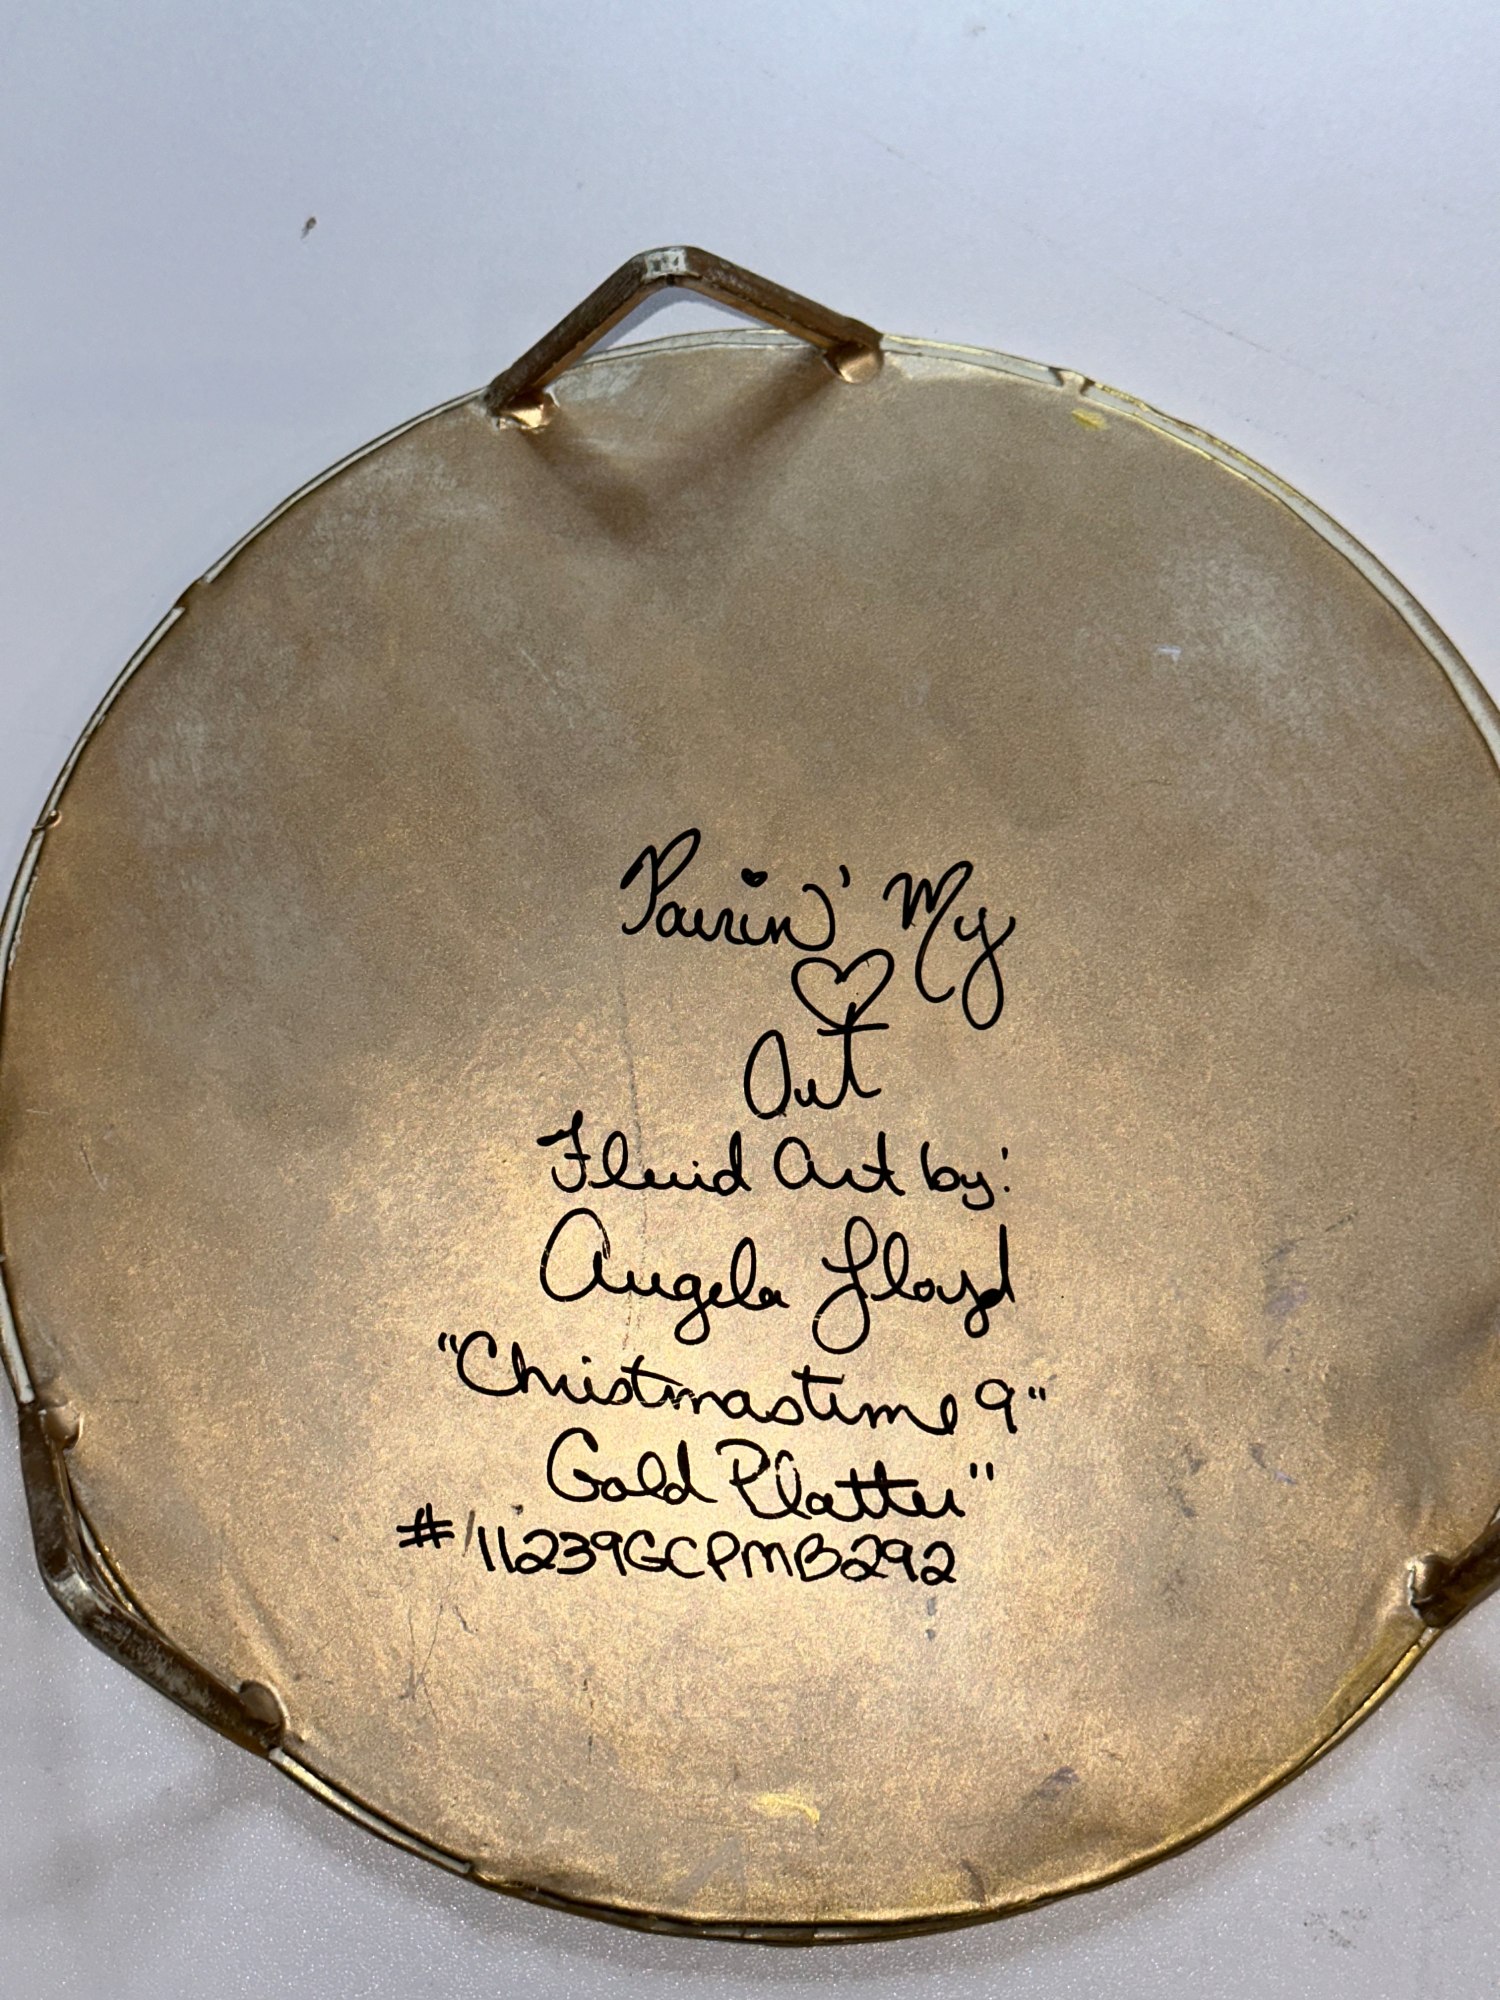 Pourin' My
♡
Out
Fluid Art by:
Angela Lloyd
"Christmastime 9"
Gold Platter"
#11239GCPMB292